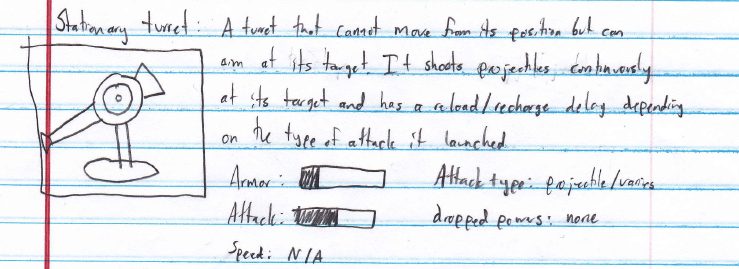 Stationary turret: A turret that cannot move from its position but can
aim at its target. It shoots projectiles continuously
at its target and has a reload/recharge delay depending
on the type of attack it launched
Armor: Attack type: projectile/varies
Attack: dropped powers: none
Speed: N/A